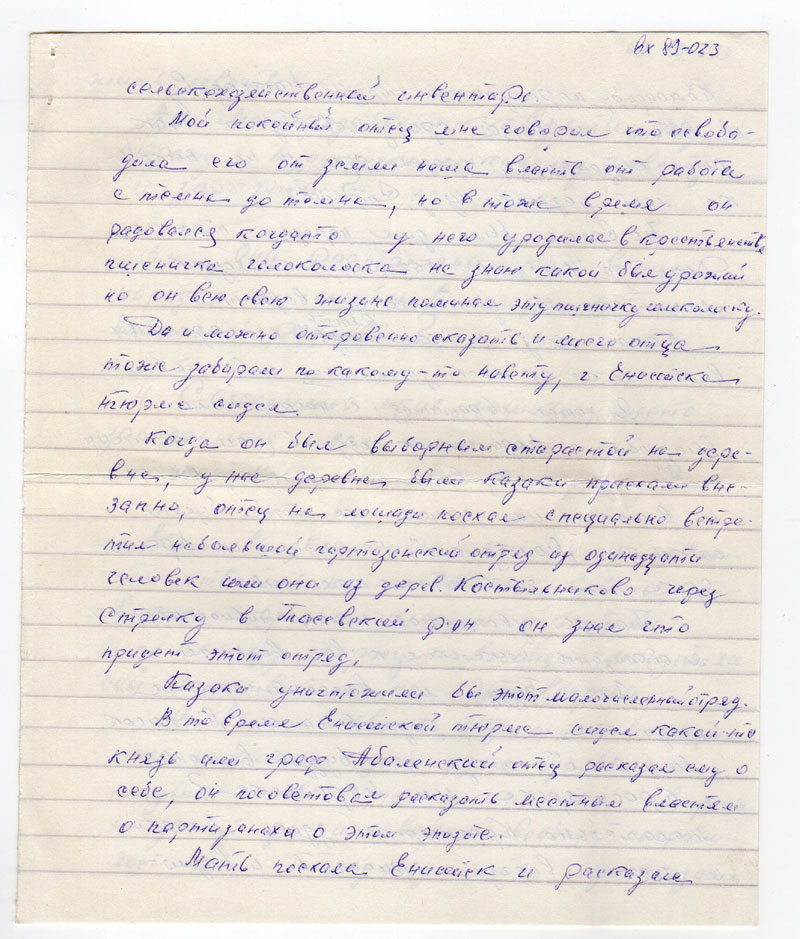 вх 89-023
сельскохозяйственный инвентарь.
Мой покойный отец мне говорил что освобо-
дила его от земли наша власть от работы
с темна до томна, но в тоже время он
радовался когдато у него уродилась в косстьянстве
пшеничка голоколоска не знаю какой был урожай
но он всю свою жизинь поминал эту пшеничку голоколоску.
Да и можно откровенно сказать и моего отца
тоже забирали по какому-то навету, г Енисейске
тюрме сидел.
Когда он был выборным старостой на дере-
вне, у нас деревне были Казаки приехали вне-
запно, отец на лошади поехал специально встре-
тил небольшой партизанский отред из одинадцати
человек шли они из дерев. Костыльниково через
Стрелку в Тасеевский р-он. он знал что
придет этот отред.
Казаки уничтожили бы этот малочисленный отред.
В то время Енисейской тюрме сидел какой-то
князь или графа Абаленский отец расказал ему о
себе, он посоветовал расказать местным властям
о партизанах и о этом эпизоте.
Мать поехала Енисейск и расказала